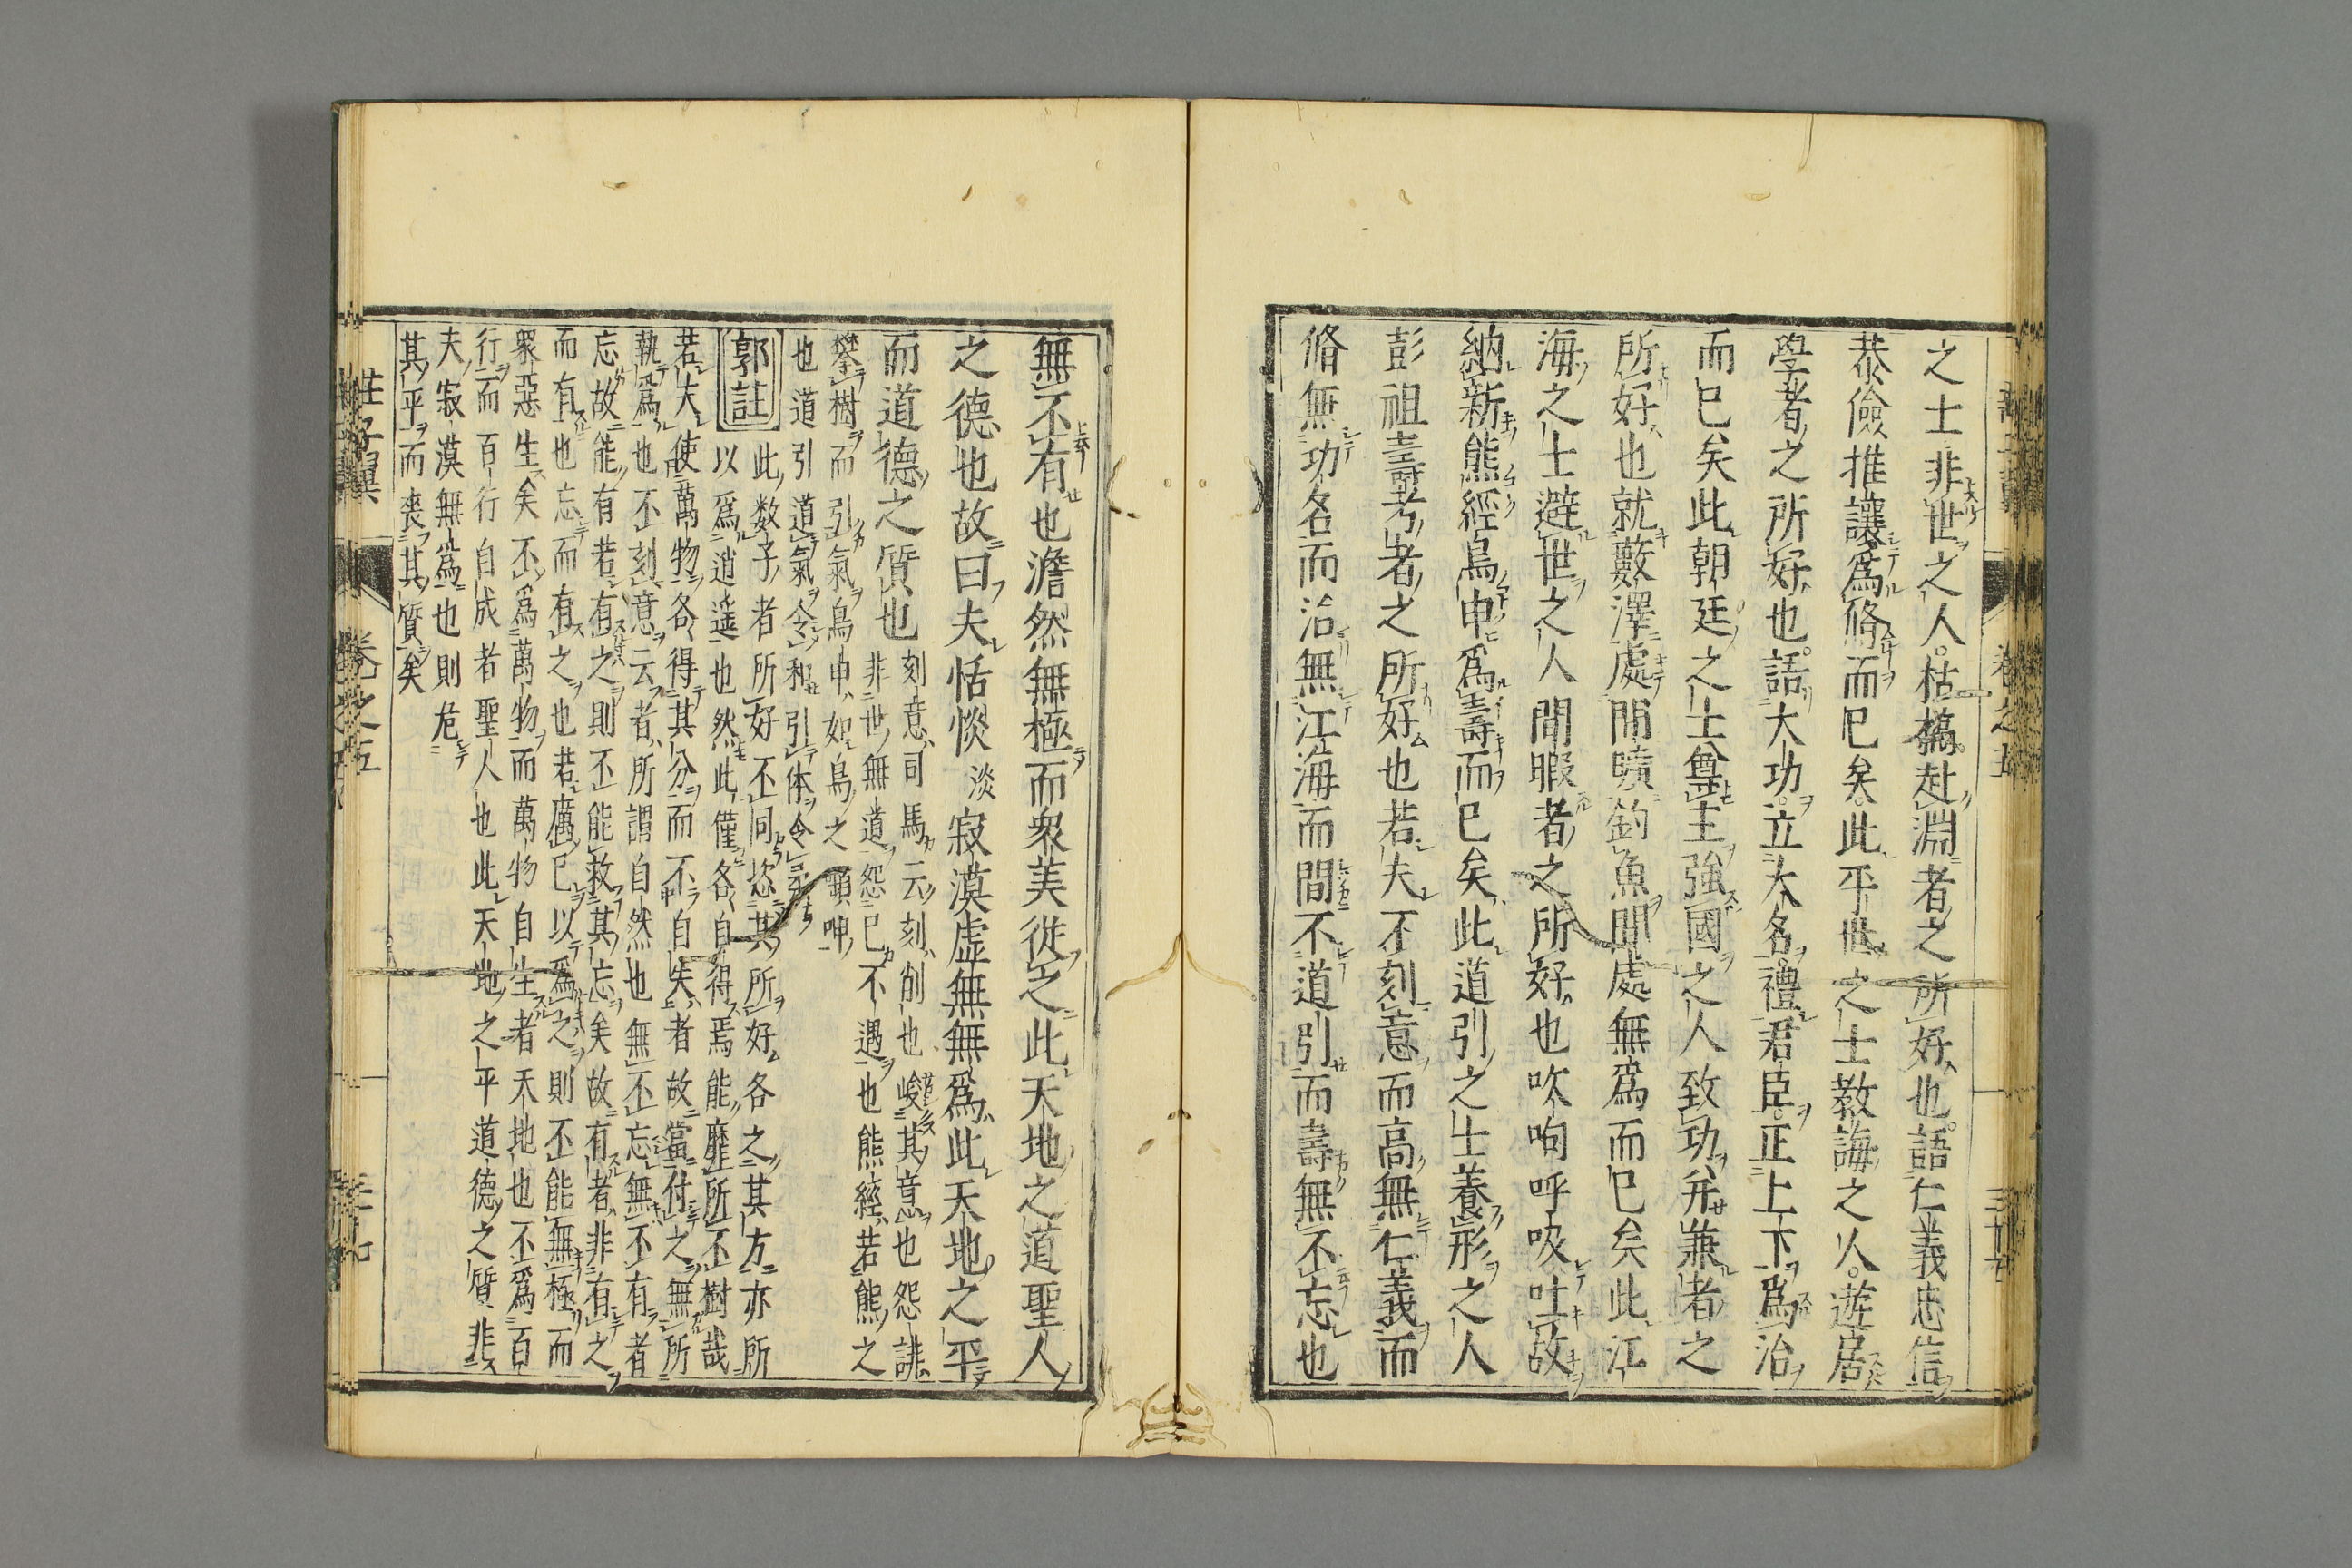 之士非世之人枯槁赴淵者之所好也語仁義忠信
恭儉推讓爲脩而已矣此平世之士敎誨之人遊居
學者之所好也語大功立大名禮君臣正上下爲治
而已矣此朝廷之士尊主強國之人致功并兼者之
所好也就藪澤處閒曠釣魚閒處無爲而已矣此江
海之士避世之人閒暇者之所好也吹呴呼吸吐故
納新熊經鳥申爲壽而已矣此道引之士養形之人
彭祖壽考者之所好也若夫不刻意而高無仁義而
脩無功名而治無江海而間不道引而壽無不忘也
無不有也澹然無極而衆美從之此天地之道聖人
之德也故曰夫恬惔淡寂漠虛無無爲此天地之平
而道德之質也刻意司馬云刻削也峻其意也怨誹
非世無道怨已不遇也熊經若熊之
攀樹而引氣鳥申如鳥之嚬呻
也道引道氣令和引体令柔
郭註此数子者所好不同恣其所好各之其方亦所
以爲逍遥也然此僅各自得焉能靡所不樹哉
若夫使萬物各得其分而不自失者故當付之無所
執爲也不刻意云者所謂自然也無不忘無不有者
忘故能有若有之則不能救其忘矣故有者非有之
而有也忘而有之也若厲已以爲之則不能無極而
衆惡生矣不爲萬物而萬物自生者天地也不爲百
行而百行自成者聖人也此天地之平道德之質非
夫寂漠無爲也則危
其平而喪其質矣
莊子翼
卷之五